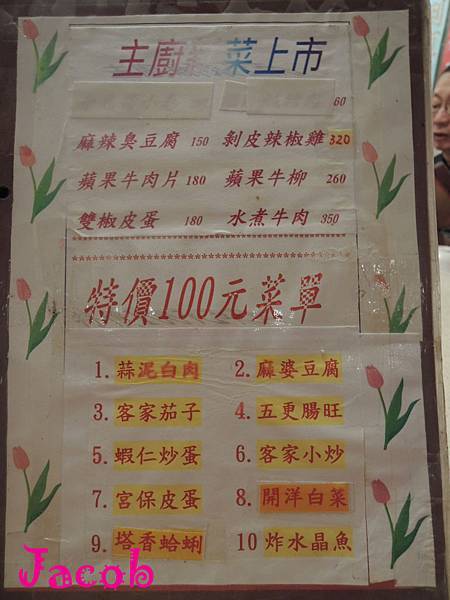 主廚 菜上市
60
麻辣臭豆腐 150 剝皮辣椒雞 320
蘋果牛肉片 180 蘋果牛柳 260
雙椒皮蛋 180 水煮牛肉 350
特價100元菜單
1. 蒜泥白肉 2. 麻婆豆腐
3. 客家茄子 4. 五更腸旺
5. 蝦仁炒蛋 6. 客家小炒
7. 宮保皮蛋 8. 開洋白菜
9. 塔香蛤蜊 10 炸水晶魚
Jacob